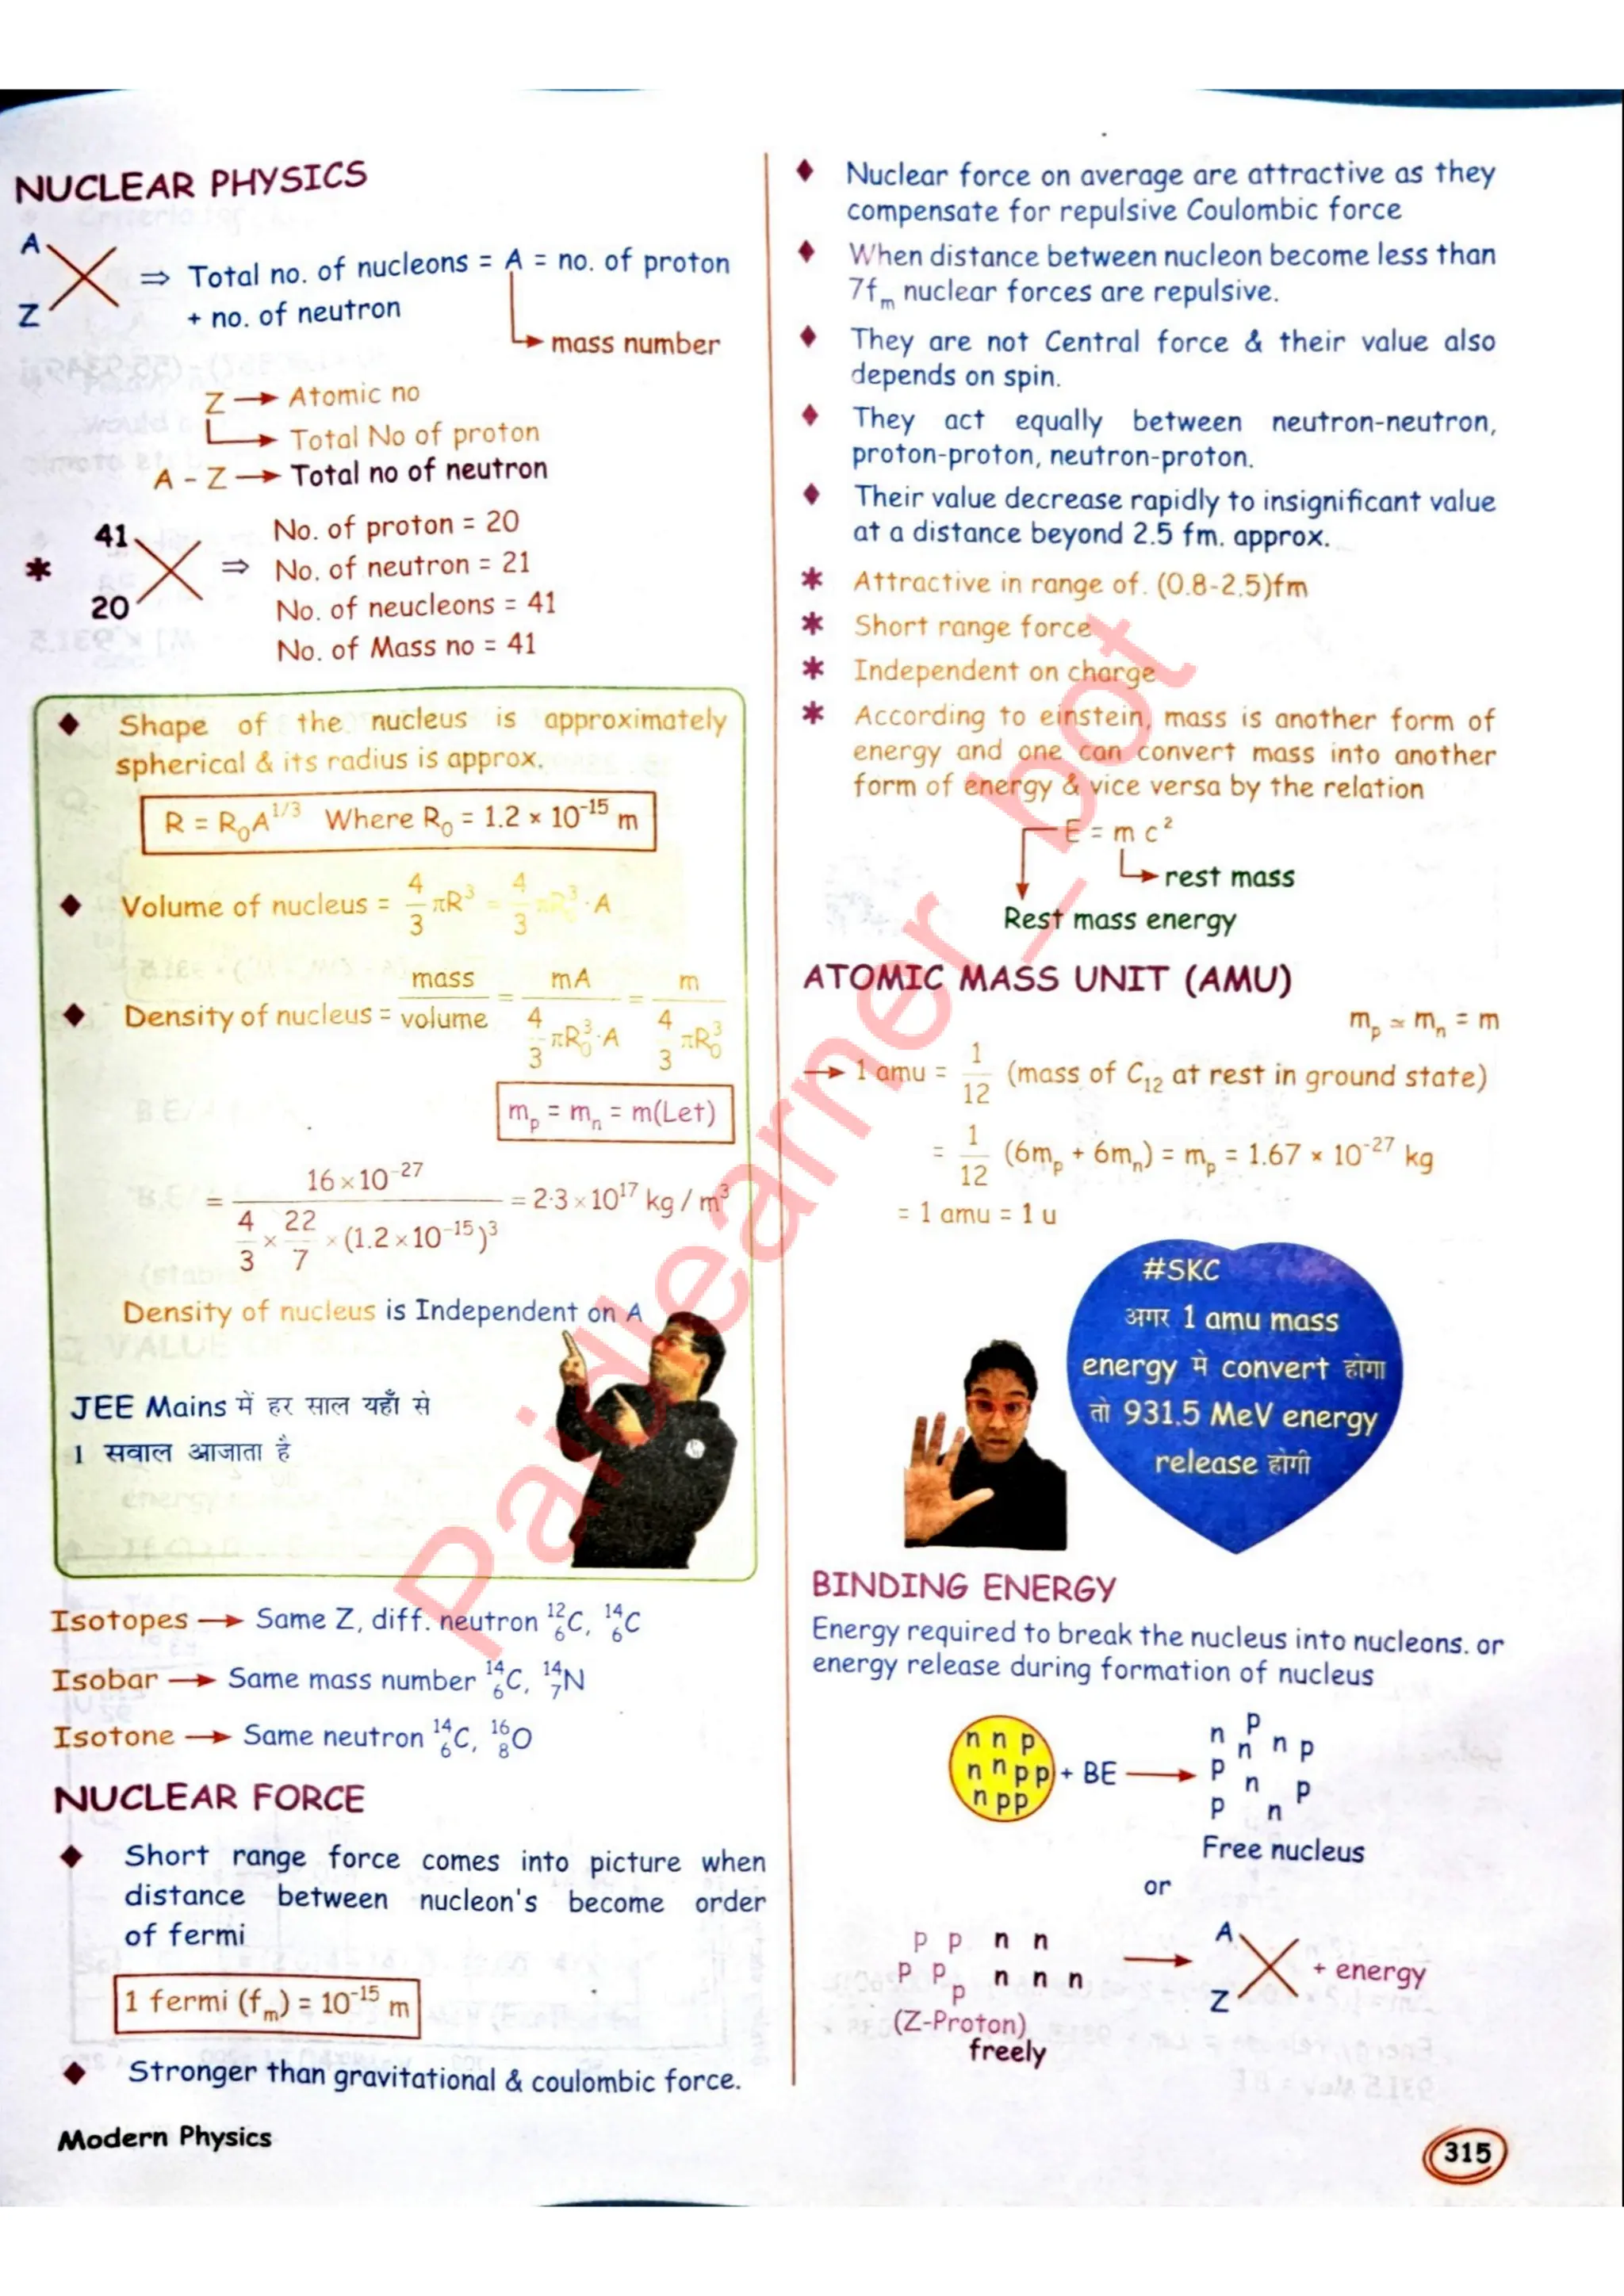 NUCLEAR PHYSICS
A
Z
⇒ Total no. of nucleons = A = no. of proton
+ no. of neutron
mass number
Z → Atomic no
Total No of proton
A - Z → Total no of neutron
* 41
20
⇒ No. of proton = 20
No. of neutron = 21
No. of neucleons = 41
No. of Mass no = 41
♦ Shape of the nucleus is approximately
spherical & its radius is approx.
R = R₀A^1/3 Where R₀ = 1.2 × 10⁻¹⁵ m
♦ Volume of nucleus = 4/3 πR³ = 4/3 πR₀³·A
♦ Density of nucleus = mass/volume = mA / (4/3 πR₀³·A) = m / (4/3 πR₀³)
mₚ = mₙ = m(Let)
= 16×10⁻²⁷ / (4/3 × 22/7 × (1.2×10⁻¹⁵)³) = 2·3×10¹⁷ kg / m³
Density of nucleus is Independent on A
JEE Mains में हर साल यहाँ से
1 सवाल आजाता है
Isotopes → Same Z, diff. neutron ¹²₆C, ¹⁴₆C
Isobar → Same mass number ¹⁴₆C, ¹⁴₇N
Isotone → Same neutron ¹⁴₆C, ¹⁶₈O
NUCLEAR FORCE
♦ Short range force comes into picture when
distance between nucleon's become order
of fermi
1 fermi (fₘ) = 10⁻¹⁵ m
♦ Stronger than gravitational & coulombic force.
♦ Nuclear force on average are attractive as they
compensate for repulsive Coulombic force
♦ When distance between nucleon become less than
7fₘ nuclear forces are repulsive.
♦ They are not Central force & their value also
depends on spin.
♦ They act equally between neutron-neutron,
proton-proton, neutron-proton.
♦ Their value decrease rapidly to insignificant value
at a distance beyond 2.5 fm. approx.
* Attractive in range of. (0.8-2.5)fm
* Short range force
* Independent on charge
* According to einstein, mass is another form of
energy and one can convert mass into another
form of energy & vice versa by the relation
E = m c²
rest mass
Rest mass energy
ATOMIC MASS UNIT (AMU)
mₚ ≃ mₙ = m
→ 1 amu = 1/12 (mass of C₁₂ at rest in ground state)
= 1/12 (6mₚ + 6mₙ) = mₚ = 1.67 × 10⁻²⁷ kg
= 1 amu = 1 u
#SKC
अगर 1 amu mass
energy मे convert होगा
तो 931.5 MeV energy
release होगी
BINDING ENERGY
Energy required to break the nucleus into nucleons. or
energy release during formation of nucleus
n n p
n n p p
n p p
+ BE →
n p
n n p
p n p
p n
Free nucleus
or
p p n n
p p n n n
p
(Z-Proton)
freely
→
A
Z
+ energy
Modern Physics
315
Paidlearner_bot